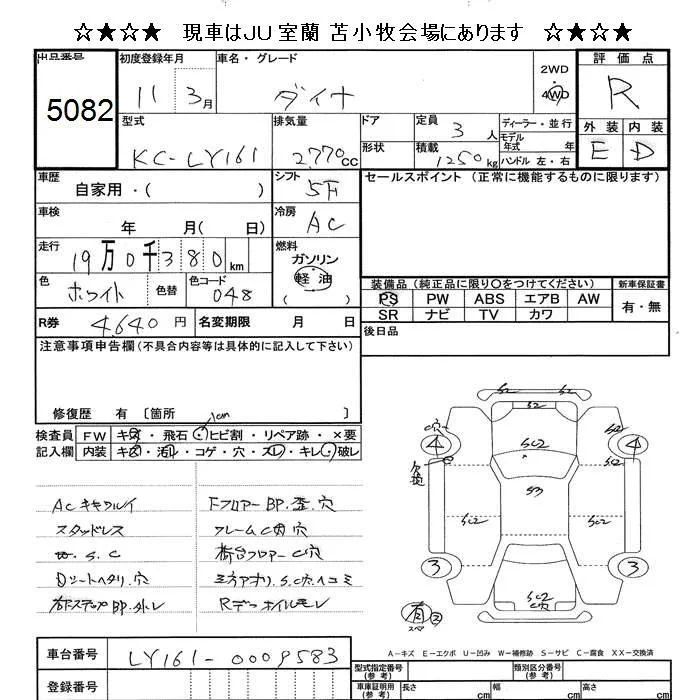 ☆★☆★ 現車はJU室蘭 苫小牧会場にあります ☆★☆★
出品番号
5082
初度登録年月
11 3月
車名・グレード
ダイナ
2WD
4WD
評価点
R
外装 内装
E D
型式
KC-LY161
排気量
2770cc
ドア
形状
定員
3人
積載
1250kg
ディーラー・並行
モデル年式 年
ハンドル 左・右
車歴
自家用・( )
シフト
5F
セールスポイント (正常に機能するものに限ります)
車検
年 月 (日)
冷房
AC
走行
19万0千380km
燃料
ガソリン
軽油
( )
色
ホワイト 色替
色コード
048
装備品(純正品に限り○をつけてください)
PS PW ABS エアB AW
SR ナビ TV カワ
新車保証書
有・無
R券 4640円 名変期限 月 日
後日品
注意事項申告欄(不具合内容等は具体的に記入して下さい)
修復歴 有 〔箇所 〕
検査員
記入欄
FW キズ・飛石・ヒビ割・リペア跡・×要
1cm
内装 キズ・汚れ・コゲ・穴・スレ・キレ・破レ
ACキャワルイ
スタッドレス
S.C
Dシートヘタリ.穴
右ステップBP.外レ
Fフロアー BP.歪.穴
フレームC肉穴
荷台フロアーC穴
三方アオリ.SC穴ヘコミ
Rデフオイルモレ
S2 S2
穴 SC2 S2
4 4
欠損
S3
SC2 SC2
3 3
SC2
C穴
有 2
スペア
A-キズ E-エクボ U-凹み W-補修跡 S-サビ C-腐食 XX-交換済
車台番号
LY161-0009583
登録番号
型式指定番号
(参考)
類別区分番号
(参考)
車庫証明用
(参考)
長さ cm
幅 cm
高さ cm